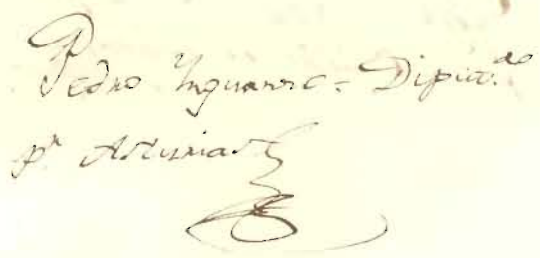 Pedro Inguanzo = Diput.do
p.r Asturias